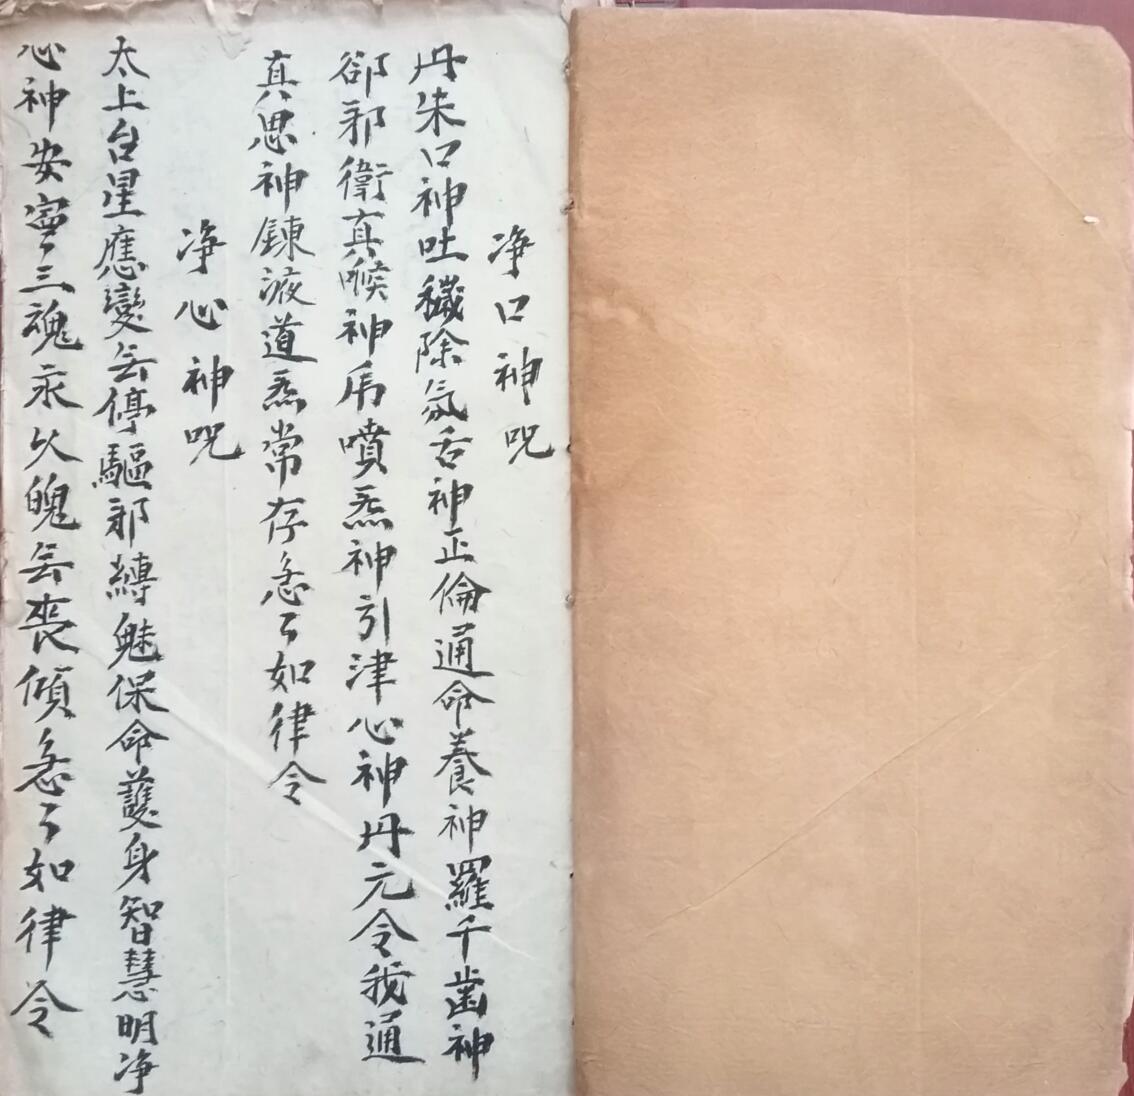 净口神咒
丹朱口神吐穢除氛舌神正倫通命養神羅千齒神
郤邪衛真喉神虎噴炁神引津心神丹元令我通
真思神鍊液道炁常存急々如律令
净心神咒
太上台星應變无停驅邪縛魅保命護身智慧明净
心神安寧三魂永久魄无丧傾急々如律令